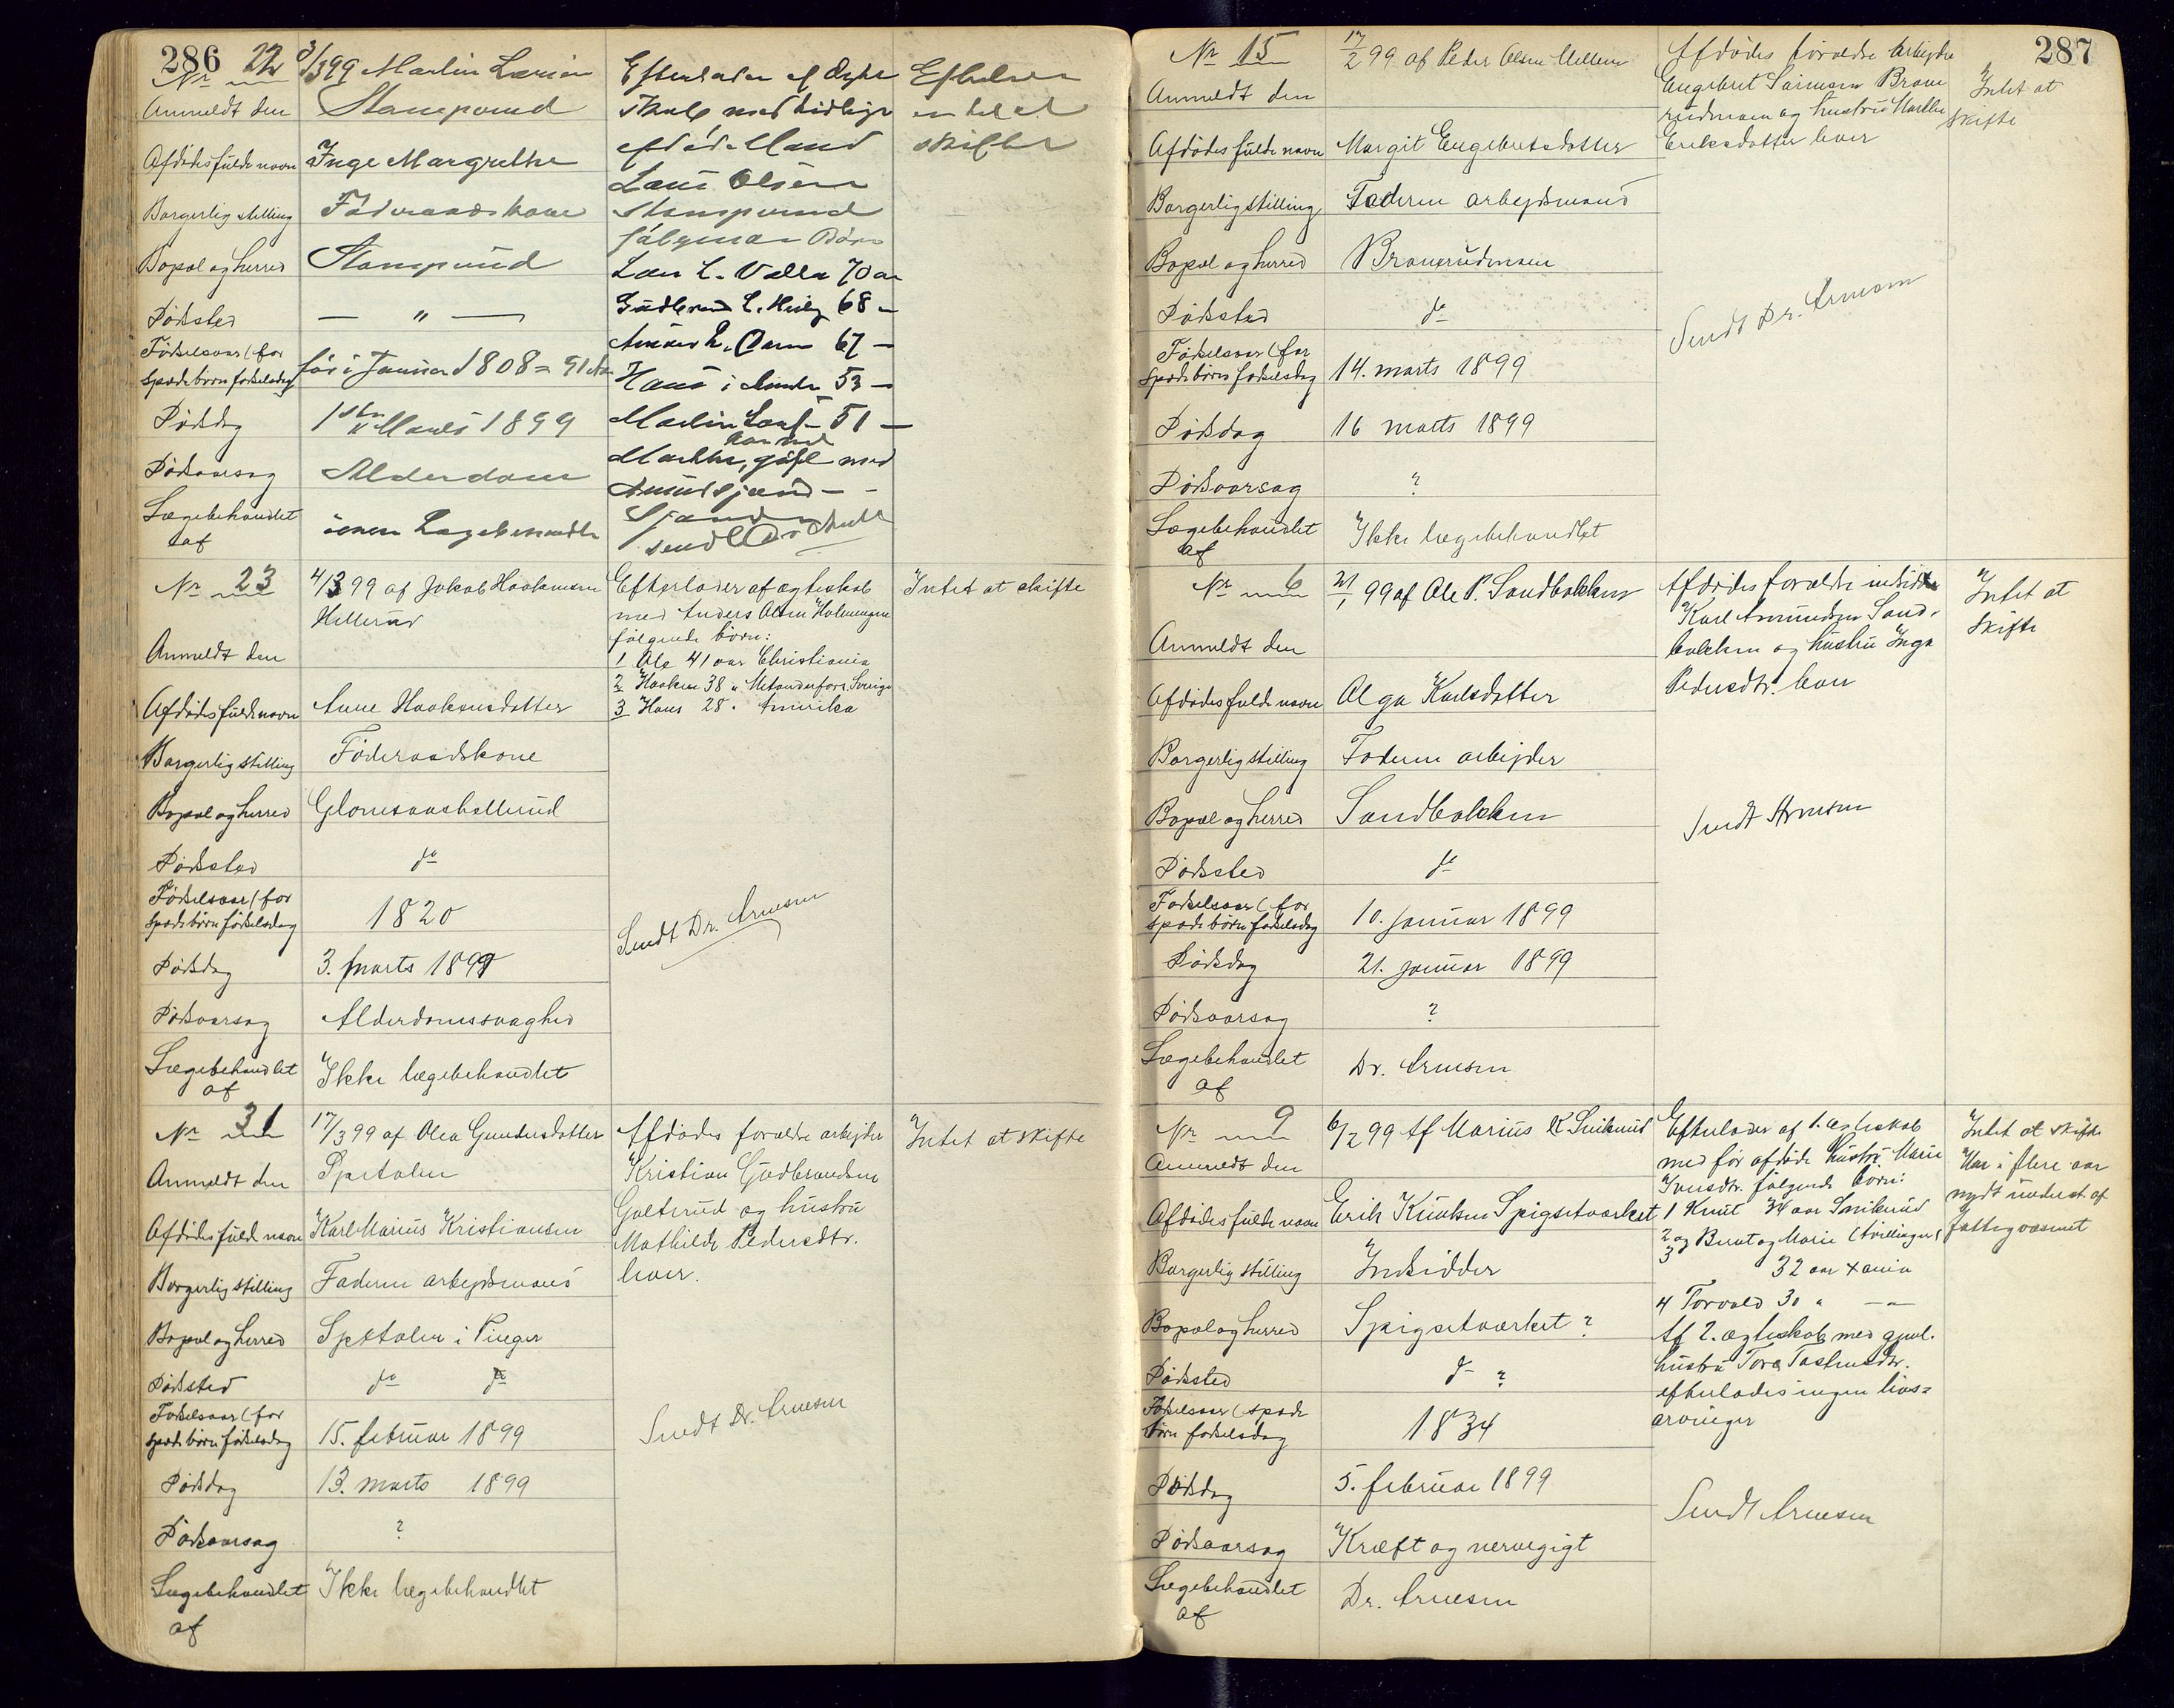 286
Nr 22 3/3 99 Martin Larsen
Anmeldt den Stampemd
Afdødes fulde navn Inge Margrethe
Borgerlig stilling Føderaadskone
Bopæl og herred
Dødssted — " —
Fødselsaar (for
spædebørn fødselsdag før i Januar 1808 = 91 Aar
Dødsdag 1ste Marts 1899
Dødsaarsag Alderdom
Lægebehandlet
af
Efterlader af Ægte
skab med tidligere
afdøde Mand
Lars Olsen
følgende Børn
Lars L. Valla 70 aar
Gudbrand L. 68 —
67 —
Hans i 53 —
Martin 51 —
Marthe, gift med
sendt Dr
skifte
Nr 23 4/3 99 af Jakob Haakensen
Hellerud
Anmeldt den
Afdødes fulde navn Anne Haakensdatter
Borgerlig stilling Føderaadskone
Bopæl og herred Glomsaashellerud
Dødssted do
Fødselsaar (for
spæde børn fødselsdag 1820
Dødsdag 3. marts 1899
Dødsaarsag Alderdomssvaghed
Lægebehandlet
af Ikke lægebehandlet
Efterlader af ægteskab
med Anders Olsen
følgende børn:
1 Ole 41 aar Christiania
2 Haaken 38 " Sverige
3 Hans 28 " Amerika
Sendt Dr. Arnesen
Intet at skifte
Nr 31 17/3 99 af Olea Gundersdatter
Anmeldt den Spetalen
Afdødes fulde navn Karl Marius Kristiansen
Borgerlig stilling Faderen arbejdsmand
Bopæl og herred Spetalen i
Dødssted do do
Fødselsaar (for
spæde børn fødselsdag 15. februar 1899
Dødsdag 13. marts 1899
Dødsaarsag ?
Lægebehandlet Ikke lægebehandlet
af
Afdødes forældre arbejder
Kristian Gudbrandsen
Galterud og hustru
Mathilde Pedersdtr.
lever.
Sendt Dr. Arnesen
Intet at skifte
287
Nr 15 17/2 99 af Peder Olsen
Anmeldt den
Afdødes fulde navn Margit Engebretsdatter
Borgerlig stilling Faderen arbejdsmand
Bopæl og herred
Dødssted do
Fødselsaar (for
spæde børns fødselsdag 14. marts 1899
Dødsdag 16 marts 1899
Dødsaarsag ?
Lægebehandlet
af Ikke lægebehandlet
Afdødes forældre arbejder
Engebret
og hustru Marthe
Eriksdatter lever
Sendt Dr. Arnesen
Intet at
skifte
Nr 6 21/1 99 af Ole P. Sandbakken
Anmeldt den
Afdødes fulde navn Olga Karlsdatter
Borgerlig stilling Faderen arbejder
Bopæl og herred Sandbakken
Dødssted do
Fødselsaar (for
spæde børn fødselsdag 10. januar 1899
Dødsdag 21. januar 1899
Dødsaarsag ?
Lægebehandlet
af Dr. Arnesen
Afdødes forældre
Karl Amundsen Sand-
bakken og hustru Inga
Pedersdtr. lever
Sendt Arnesen
Intet at
skifte
Nr 9 6/2 99 Af Marius K. Snikerud
Anmeldt den
Afdødes fulde navn Erik Knutsen Spigsetværket
Borgerlig stilling Indsidder
Bopæl og herred Spigsetværket ?
Dødssted do ?
Fødselsaar (spæde
børn fødselsdag 1834
Dødsdag 5. februar 1899
Dødsaarsag Kræft og nervegigt
Lægebehandlet
af Dr. Arnesen
Efterlader af 1. ægteskab
med før afdøde hustru Marie
Iversdtr. følgende børn:
1 Knut 34 aar Snikerud
2 og Bernt og Marie (tvillinger)
3 32 aar Xania
4 Torvald 30 " — " —
Af 2. ægteskab med gjenl.
hustru Tora
efterlades ingen livs=
arvinger
Sendt Arnesen
Intet at skifte
Har i flere aar
nydt underst. af
fattigvæsenet